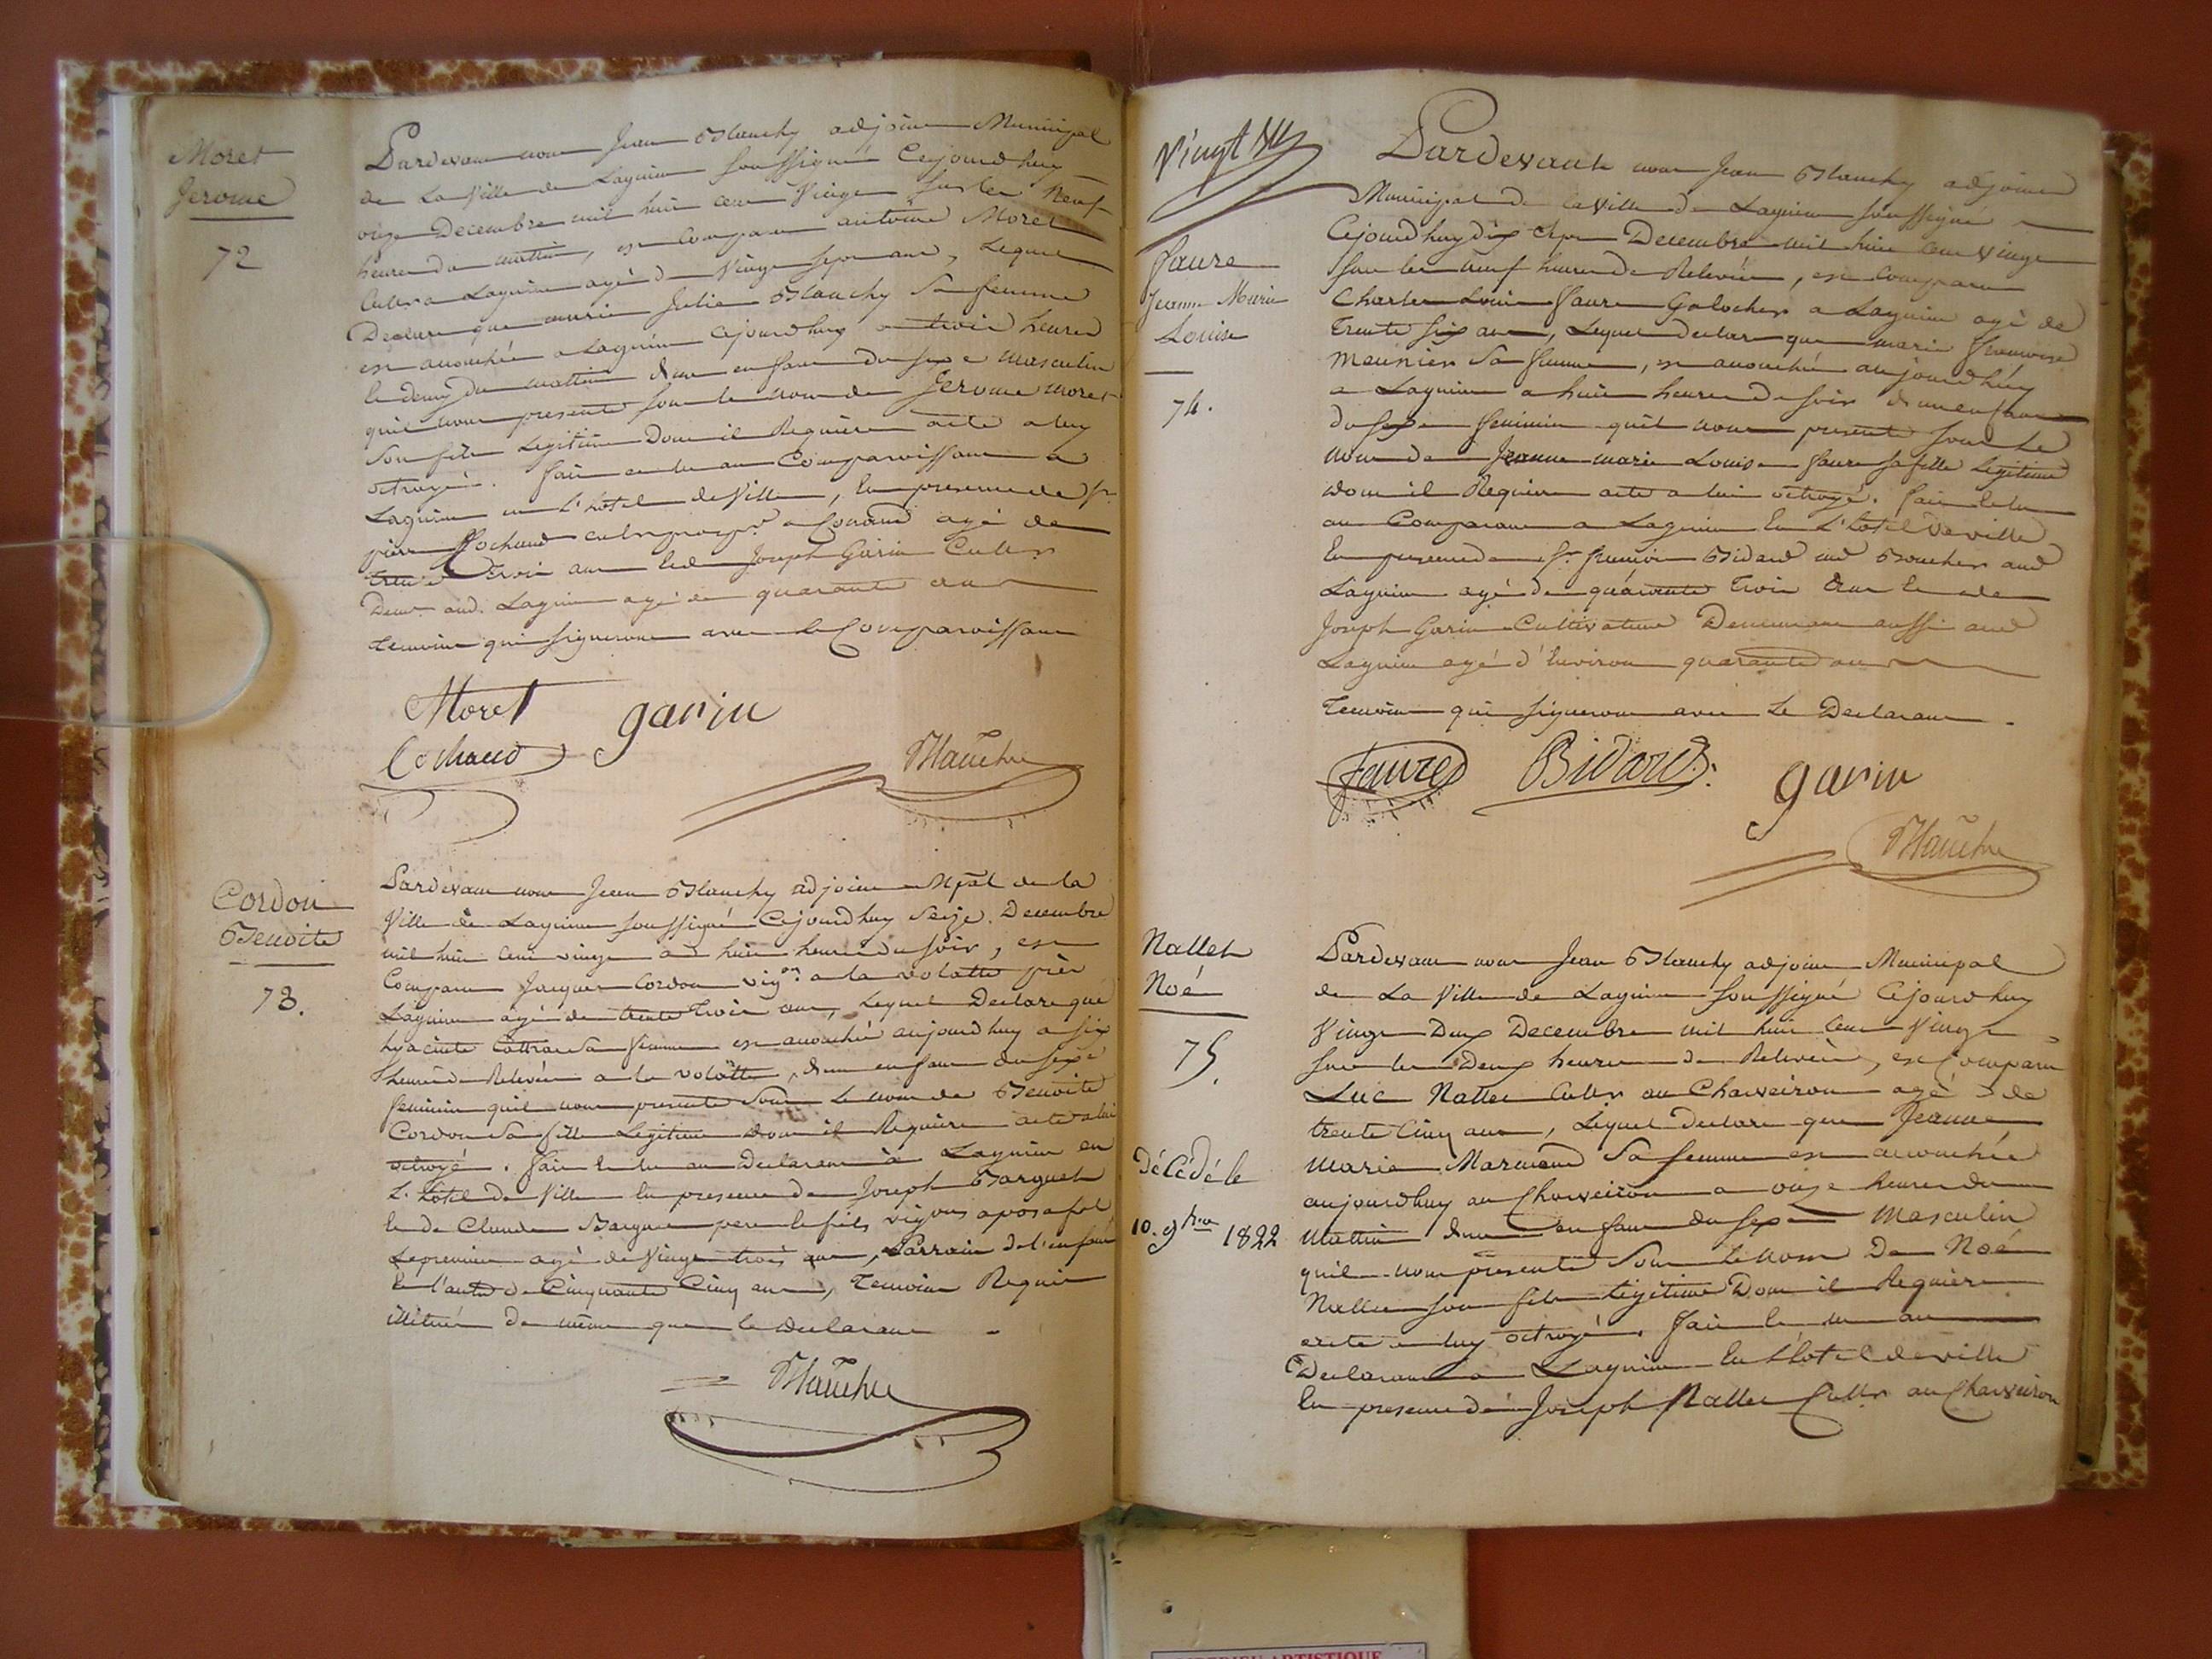 Moret
Jerome
72
Pardevant nous Jean Blanchy adjoint Municipal
de La Ville de Lagnieu soussigné Cejourdhuy
onze Decembre mil huit cent Vingt sur les Neuf
heures du mattin, est Comparu antoine Moret
Cultr a Lagnieu agé de Vingt sept ans, Lequel
Declare que marie Julie Blanchy Sa femme
est accouchée a Lagnieu cejourdhuy a trois heures
et demy du mattin d'un enfant du sexe masculin
quil nous presente sous le nom de Jerome Moret
son fils Legitime Dont il Requière acte a luy
octroyé. fait et lu au Comparoissant a
Lagnieu en l'hotel de Ville, En presence de Sr
pierre Cochaud cultr propre a agé de
trente trois ans et de Joseph Garin Cultr
Demt aud. Lagnieu agé de quarante ans
temoins qui signeront avec le Comparoissant
Moret garin
Cochaud Blanchy
Cordon
Benoite
73.
Pardevant nous Jean Blanchy adjoint Mpal de la
Ville de Lagnieu soussigné Cejourdhuy Seize Decembre
mil huit cent vingt a huit heures du soir, est
Comparu Jacques Cordon vigon a la volatte près
Lagnieu agé de trente trois ans, Lequel Declare que
hyacinte Sa femme est accouchée aujourdhuy a six
heures de Relevée a la volatte, d'un enfant du sexe
feminin quil nous presente sous le nom de Benoite
Cordon Sa fille Legitime dont il Requière acte a lui
octroyé. fait et lu au Declarant à Lagnieu en
L'hotel de Ville En presence de Joseph Barguet
et de Claude Barguet pere et fils vigons a posafol
Le premier agé de Vingt trois ans, Parrain de l'enfant
et l'autre de Cinquante Cinq ans, temoins Requis
illitérés de même que le declarant
Blanchy
Vingt six
faure
Jeanne Marie
Louise
74.
Pardevant nous Jean Blanchy adjoint
Municipal de la Ville de Lagnieu soussigné
Cejourdhuy dix sept Decembre mil huit cent vingt
sur les neuf heures de Relevée, est Comparu
Charles Louis faure Galocher a Lagnieu agé de
trente six ans, Lequel declare que marie francoise
meunier Sa femme, est accouchée aujourdhuy
a Lagnieu a huit heures du soir d'un enfant
du sexe feminin quil nous presente sous Le
nom de Jeanne marie Louise faure sa fille Legitime
dont il Requiere acte a lui octroyé. fait et lu
au Comparant a Lagnieu En L'hotel de ville
En presence de Sr francois Bidard Boucher aud
Lagnieu agé de quarante trois ans et de
Joseph Garin Cultivateur Demeurant aussi aud
Lagnieu agé d'Environ quarante ans
temoins qui signeront avec Le Declarant.
faure Bidard garin
Blanchy
Nallet
Noé
75.
Décédé le
10. 9bre 1822
Pardevant nous Jean Blanchy adjoint Municipal
de La Ville de Lagnieu soussigné Cejourdhuy
Vingt Deux Decembre mil huit cent Vingt
sur les Deux heures de Relevée, est Comparu
Luc Nallet Cultr au Charveiron agé de
trente Cinq ans, Lequel declare que Jeanne
Marie Marmond Sa femme est accouchée
aujourdhuy au Charveiron a onze heures du
Mattin d'un enfant du sexe Masculin
quil nous presente Sous Le nom De Noé
Nallet son fils Legitime Dont il Requiere
acte a luy octroyé. fait et lu au
Declarant a Lagnieu En L'hotel de ville
En presence de Joseph Nallet Cultr au Charveiron